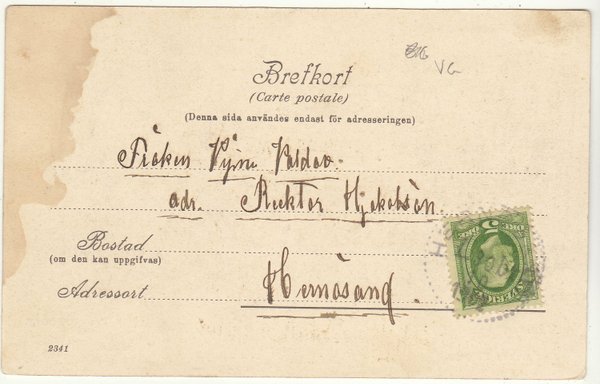 VG
Brefkort
(Carte postale)
(Denna sida användes endast för adresseringen)
Fröken
adr. Rektor
Bostad
(om den kan uppgifvas)
Adressort Hernösand.
5
SVERIGE
2341